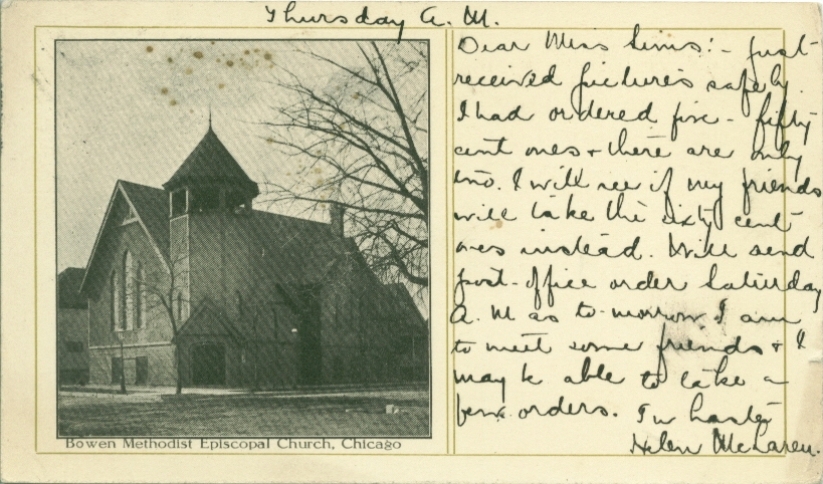 Thursday A. M.
Dear Miss Sims:- Just
received pictures safely.
I had ordered five - fifty
cent ones + there are only
two. I will see if my friends
will take the sixty cent
ones instead. Will send
post-office order Saturday
A. M as to-morrow I am
to meet some friends + I
may be able to take a
few orders. In haste
Helen McLaren.
Bowen Methodist Episcopal Church, Chicago